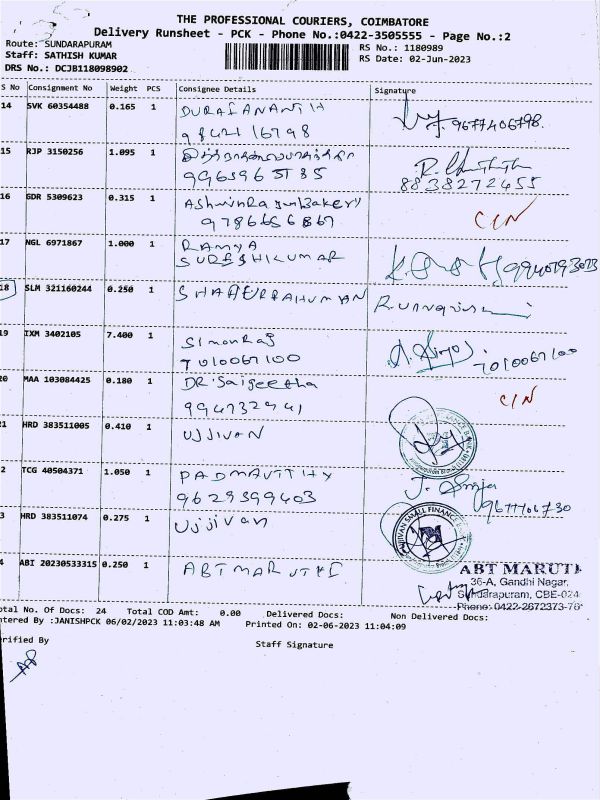 THE PROFESSIONAL COURIERS, COIMBATORE
Delivery Runsheet - PCK - Phone No.:0422-3505555 - Page No.:2
Route: SUNDARAPURAM
Staff: SATHISH KUMAR
DRS No.: DCJB118098902
RS No.: 1180989
RS Date: 02-Jun-2023
S No Consignment No Weight PCS Consignee Details Signature
14 SVK 60354488 0.165 1 DURAIANANTH
9677406798.
15 RJP 3150256 1.095 1
8838272455
16 GDR 5309623 0.315 1 Ashwinraj (Bakery)
9786656867 C/N
17 NGL 6971867 1.000 1 RAMYA
SURESHKUMAR
18 SLM 321160244 0.250 1 SHAFEURRAHUMAN
19 IXM 3402105 7.400 1 Simonraj
7010067100 7010067100
20 MAA 103084425 0.180 1 DR.Saigeetha
994732941 C/N
21 HRD 383511005 0.410 1 UJJIVAN
2 TCG 40504371 1.050 1 PADMAVTTHY
9629399403
3 HRD 383511074 0.275 1 Ujjivan
UJJIVAN SMALL FINANCE
4 ABI 20230533315 0.250 1 ABT MARUTHI
ABT MARUTI
36-A, Gandhi Nagar,
Sundarapuram, CBE-024
Phone: 0422-2672373-76
otal No. Of Docs: 24 Total COD Amt: 0.00 Delivered Docs: Non Delivered Docs:
ntered By :JANISHPCK 06/02/2023 11:03:48 AM Printed On: 02-06-2023 11:04:09
rified By Staff Signature